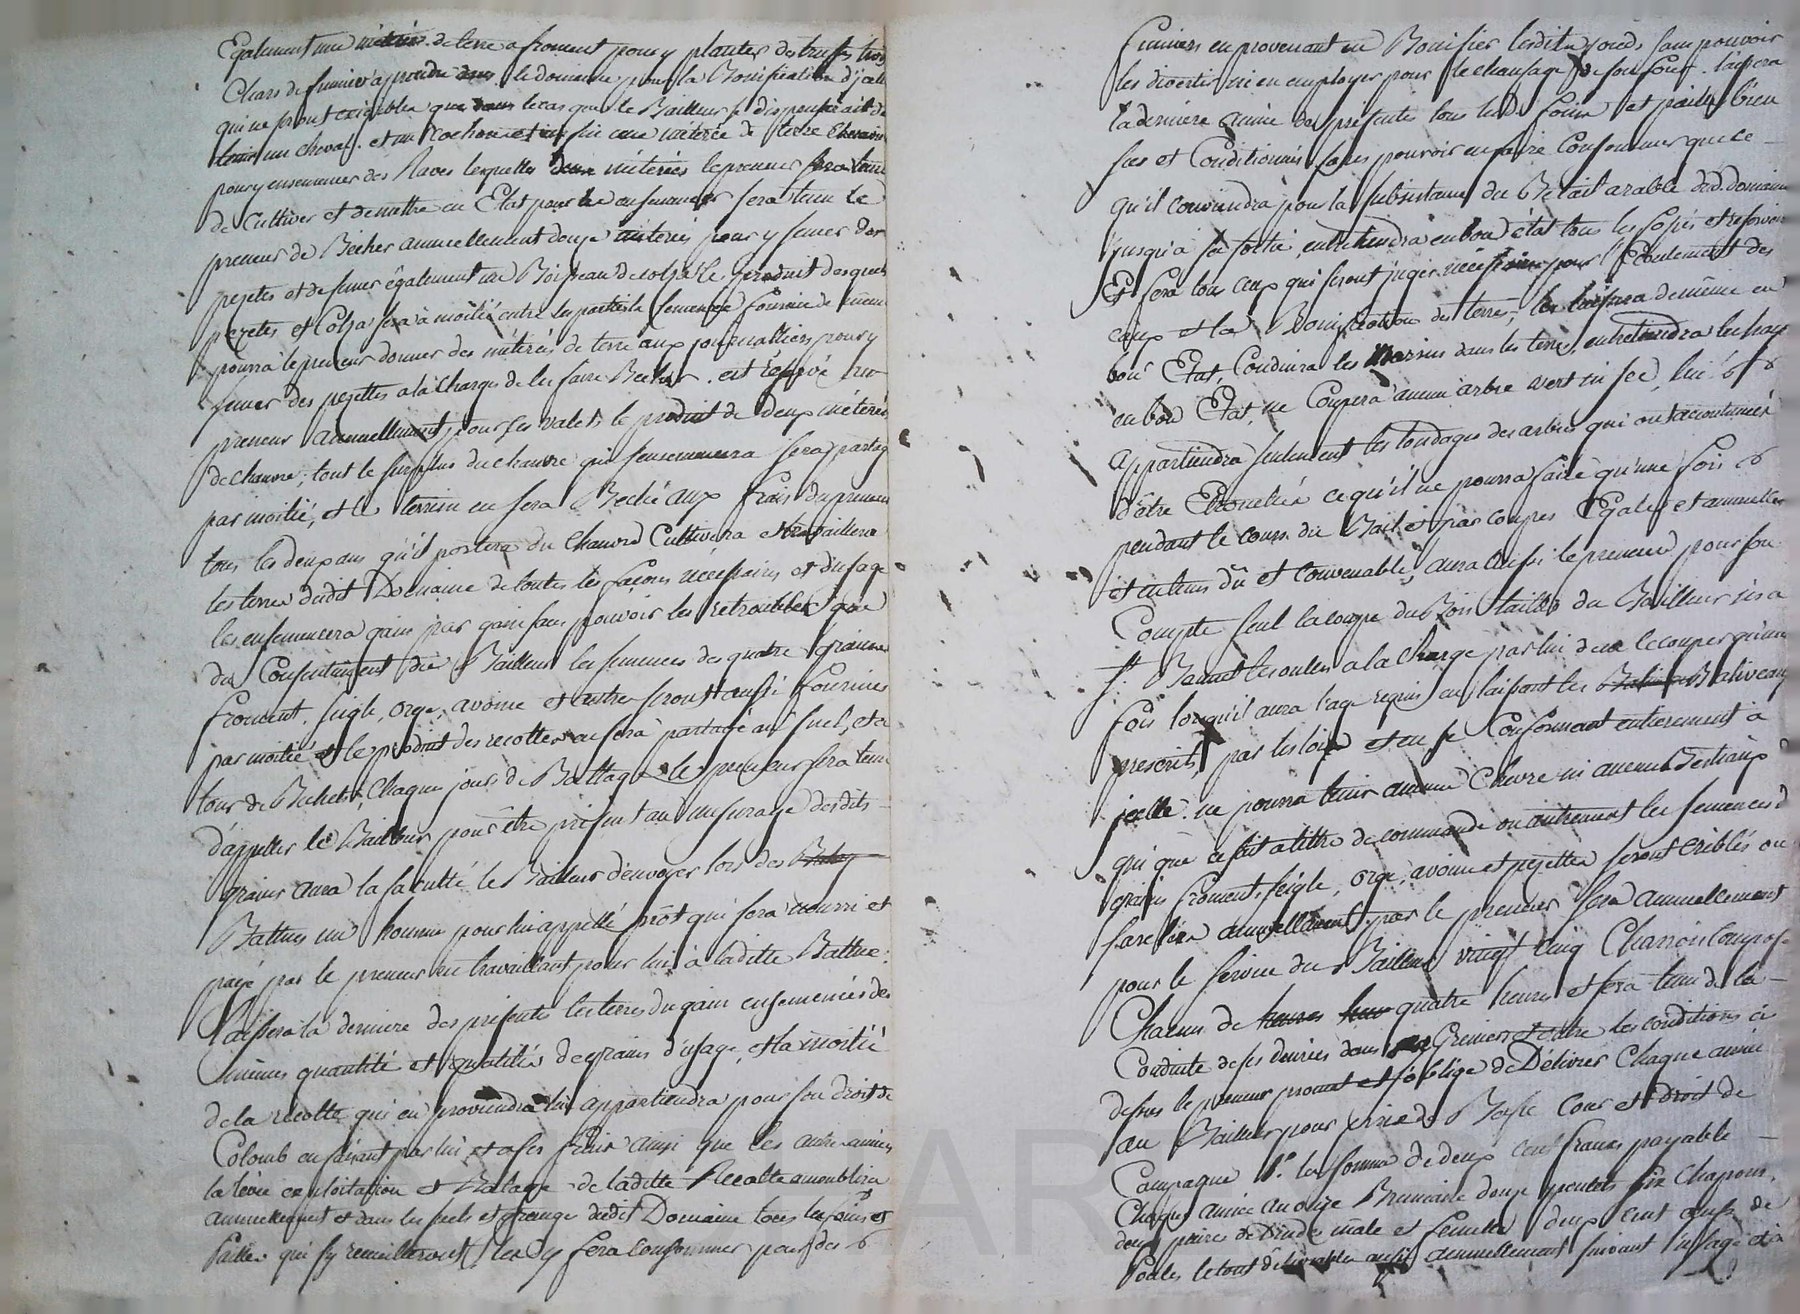 Egalement une métérée de terre a froment pour y planter des truffes trois
Chars de fumier a prendre dans le domaine pour la Bonification d'jcelle
qui ne seront exigibles que dans le cas que le Bailleur se dispenserait de
tenir un cheval. et un cochon et enfin une métérée de terre Chevain
pour y ensemencer des Raves lesquelles deux métérées le preneur sera tenu
de Cultiver et de mettre en Etat pour les ensemencer sera tenu le
preneur de Bécher annuellement douze métérées pour y semer des
pezettes et de semer également un Boisseau de colza le produit desquels
pezetes et Colza sera à moitié entre les parties la semence fournie de même
pourra le preneur donner des métérées de terre aux journalliers pour y
semer des pezettes a la charge de les faire Becher. est réservé au
preneur annuellement pour ses valets le produit de deux métérées
de chanvre; tout le surplus du chanvre qui s'ensemencera sera partagé
par moitié, et le terrein en sera Beché aux frais du preneur
tous les deux ans qu'il portera du Chanvre Cultivera et travaillera
les terres dudit Domaine de toutes les façons nécessaires et d'usage
les ensemencera gain par gain sans pouvoir les retroubler que
du Consentiment du Bailleur les semences des quatre grains
froment, seigle, orge, avoine et autres seront aussi fournies
par moitié et le produit des recoltes en sera partagé au suel, et a
tour de Bichets, Chaque jour de Battage le preneur sera tenu
d'appeller le Bailleur pour être présent au mesurage desdits
grains aura la faculté le Bailleur d'envoyer lors des
Battues un homme pour lui appellé prôt qui sera nourri et
payé par le preneur en travaillant pour lui à ladite Battue.
Laissera la derniere des présentes les terres du gain ensemencées de
mêmes quantité et qualités de grains d'usage, et la moitié
de la recolte qui en proviendra lui appartiendra pour son droit de
Colomb en faisant par lui et a ses frais ainsi que les autres années
la levée exploitation et Batage de ladite Recolte amoublera
annuellement et dans les fuels et grange dudit Domaine tous les foins et
Pailles qui s'y recuilleront les y fera consommer pour des
fumiers en provenant en Bonifier lesdits fonds sans pouvoir
les divertir ni en employer pour le chaufage de son four. laissera
la derniere année des présentes tous les d. foins et pailles bien
secs et Conditionnés sans pouvoir en faire Consommer que ce
qu'il conviendra pour la subsistance du Betail arable dud. Domaine
jusqu'à sa sortie, entretiendra en bon état tous les fossés et
Et fera tous ceux qui seront jugés necessaires pour l'Ecoulement des
eaux et la Bonification des terres, les laissera de même en
bon Etat, Conduira les Marins dans les terres, entretiendra les hayes
en bon Etat, ne Coupera aucun arbre vert ni sec, lui
appartiendra seulement les tondages des arbres qui ont accoutumés
d'être Ebranchés ce qu'il ne pourra faire qu'une fois
pendant le cours du Bail et par coupes Egales et annuelles
et en tems dû et Convenable, aura aussi le preneur pour son
Compte seul la coupe du Bois taillis du Bailleur sis a
St. Bonnet les oules a la Charge par lui de ne le couper qu'une
fois lorsqu'il aura l'age requis en laissant les Baliveaux
prescrits par les loix et en se Conformant entierement à
jcelle. ne pourra tenir aucune Chevre ni aucuns Bestiaux
qui que ce soit a titre de commande ou autrement les semences de
grains froment, seigle, orge, avoine et pezettes seront criblés ou
annuellement par le preneur sera annuellement
pour le service du Bailleur vingt cinq Charrois
Chacun de heures quatre heures et sera tenu de la
Conduite de ses denrées dans ses Greniers et outre les conditions ci
dessus le preneur promet et s'oblige de Délivrer Chaque année
au Bailleur pour prix de Basse Cour et droit de
Campagne 1°. la somme de deux cent francs payable
Chaque année au onze Brumaire douze poulets six Chapons.
deux paires de Dindes male et femelle deux cent œufs de
Poules le tout délivrable aussi annuellement suivant l'usage et à